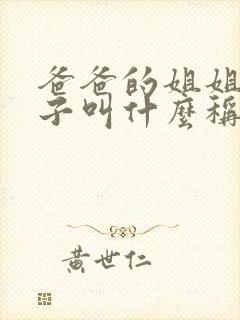 爸爸的姐姐
子叫什麼稱
黃世仁